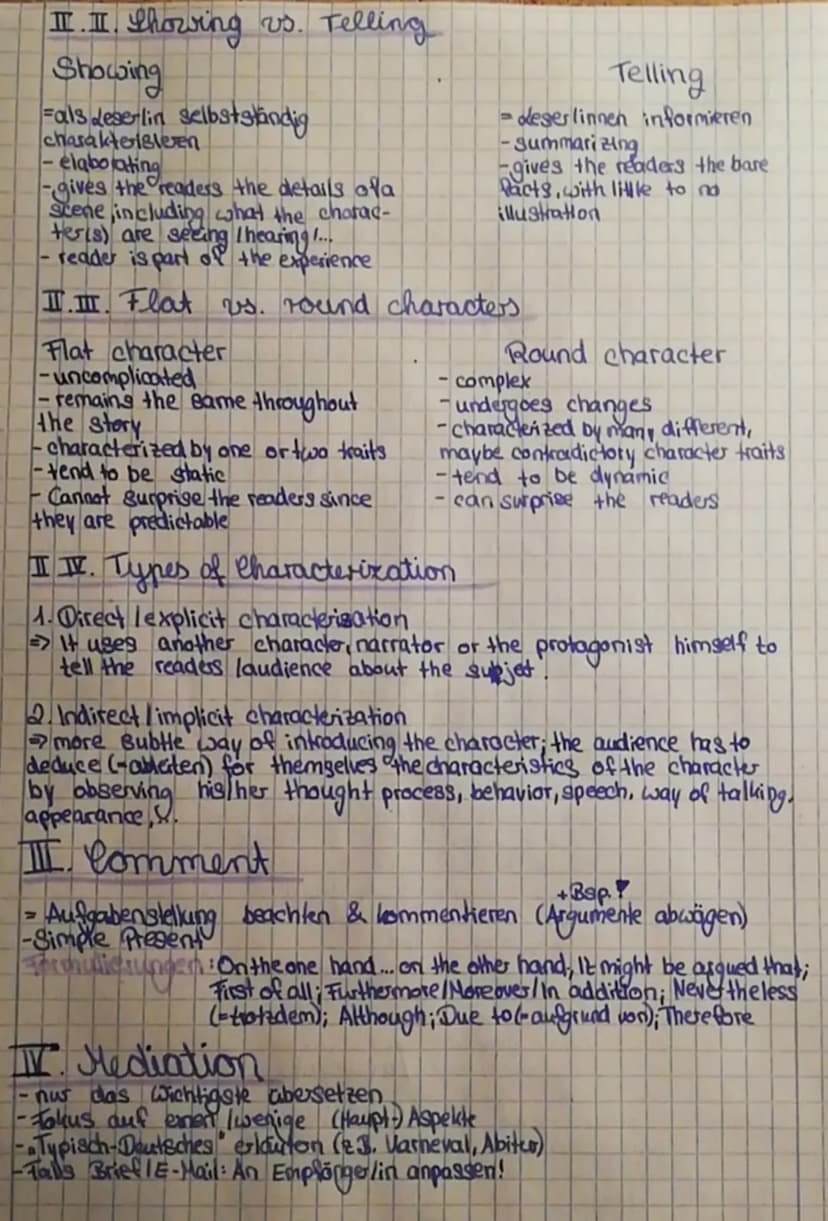 II.II. Showing vs. Telling
Showing
=als Leser/in selbstständig
charakterisieren
- elaborating
- gives the readers the details of a
scene, including what the charac-
ter(s) are seeing / hearing /...
- reader is part of the experience
Telling
= Leser/innen informieren
- summarizing
- gives the readers the bare
facts, with little to no
illustration
II.III. Flat vs. round characters
Flat character
- uncomplicated
- remains the same throughout
the story
- characterized by one or two traits
- tend to be static
- Cannot surprise the readers since
they are predictable
Round character
- complex
- undergoes changes
- characterized by many different,
maybe contradictory character traits
- tend to be dynamic
- can surprise the readers
II IV. Types of Characterization
1. Direct / explicit characterisation
=> It uses another character, narrator or the protagonist himself to
tell the readers /audience about the subject.
2. Indirect / implicit characterization
=> more subtle way of introducing the character; the audience has to
deduce (=ableiten) for themselves the characteristics of the character
by observing his/her thought process, behavior, speech, way of talking,
appearance,
III. Comment
+Bsp.!
= Aufgabenstellung beachten & kommentieren (Argumente abwägen)
-Simple Present
Formulierungen: On the one hand... on the other hand; It might be argued that;
First of all; Furthermore/Moreover/In addition; Nevertheless
(=trotzdem); Although; Due to (=aufgrund von); Therefore
IV. Mediation
- nur das Wichtigste übersetzen
- Fokus auf einen / wenige (Haupt-) Aspekte
- „Typisch-Deutsches" erläutern (z.B. Karneval, Abitur)
- Falls Brief/E-Mail: An Empfänger/in anpassen!